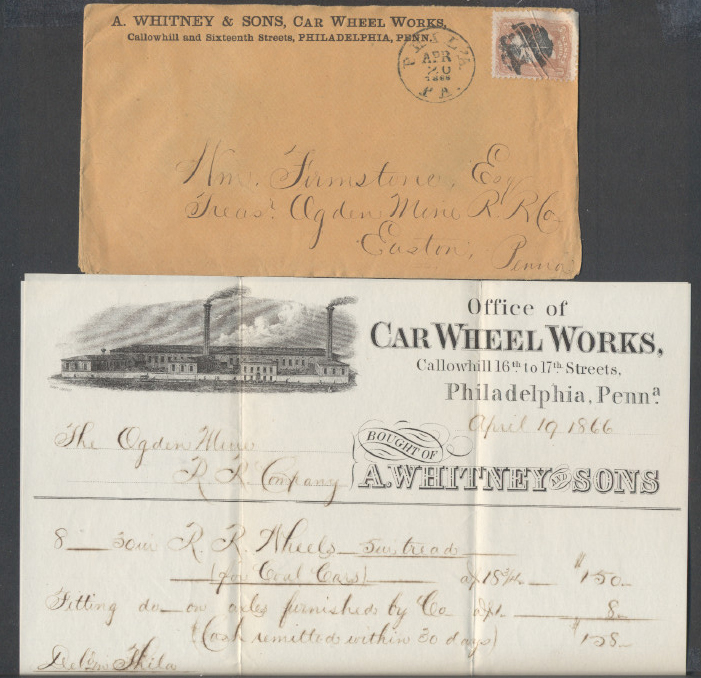 A. WHITNEY & SONS, CAR WHEEL WORKS,
Callowhill and Sixteenth Streets, PHILADELPHIA, PENN.
PHILA.
APR
20
1866
PA.
Wm. Firmstone, Esq
Treasr. Ogden Mine R. R Co
Easton,
Penna
Office of
CAR WHEEL WORKS,
Callowhill 16th to 17th Streets,
Philadelphia, Penna.
April 19 1866
The Ogden Mine
R R Company
BOUGHT OF
A. WHITNEY AND SONS
8 — 30in R. R. Wheels — 5in tread —
(for Coal Cars) — 18 3/4 — $150—
Fitting do — on axles furnished by Co 1. — 8—
(Cash remitted within 30 days) $158—
Phila